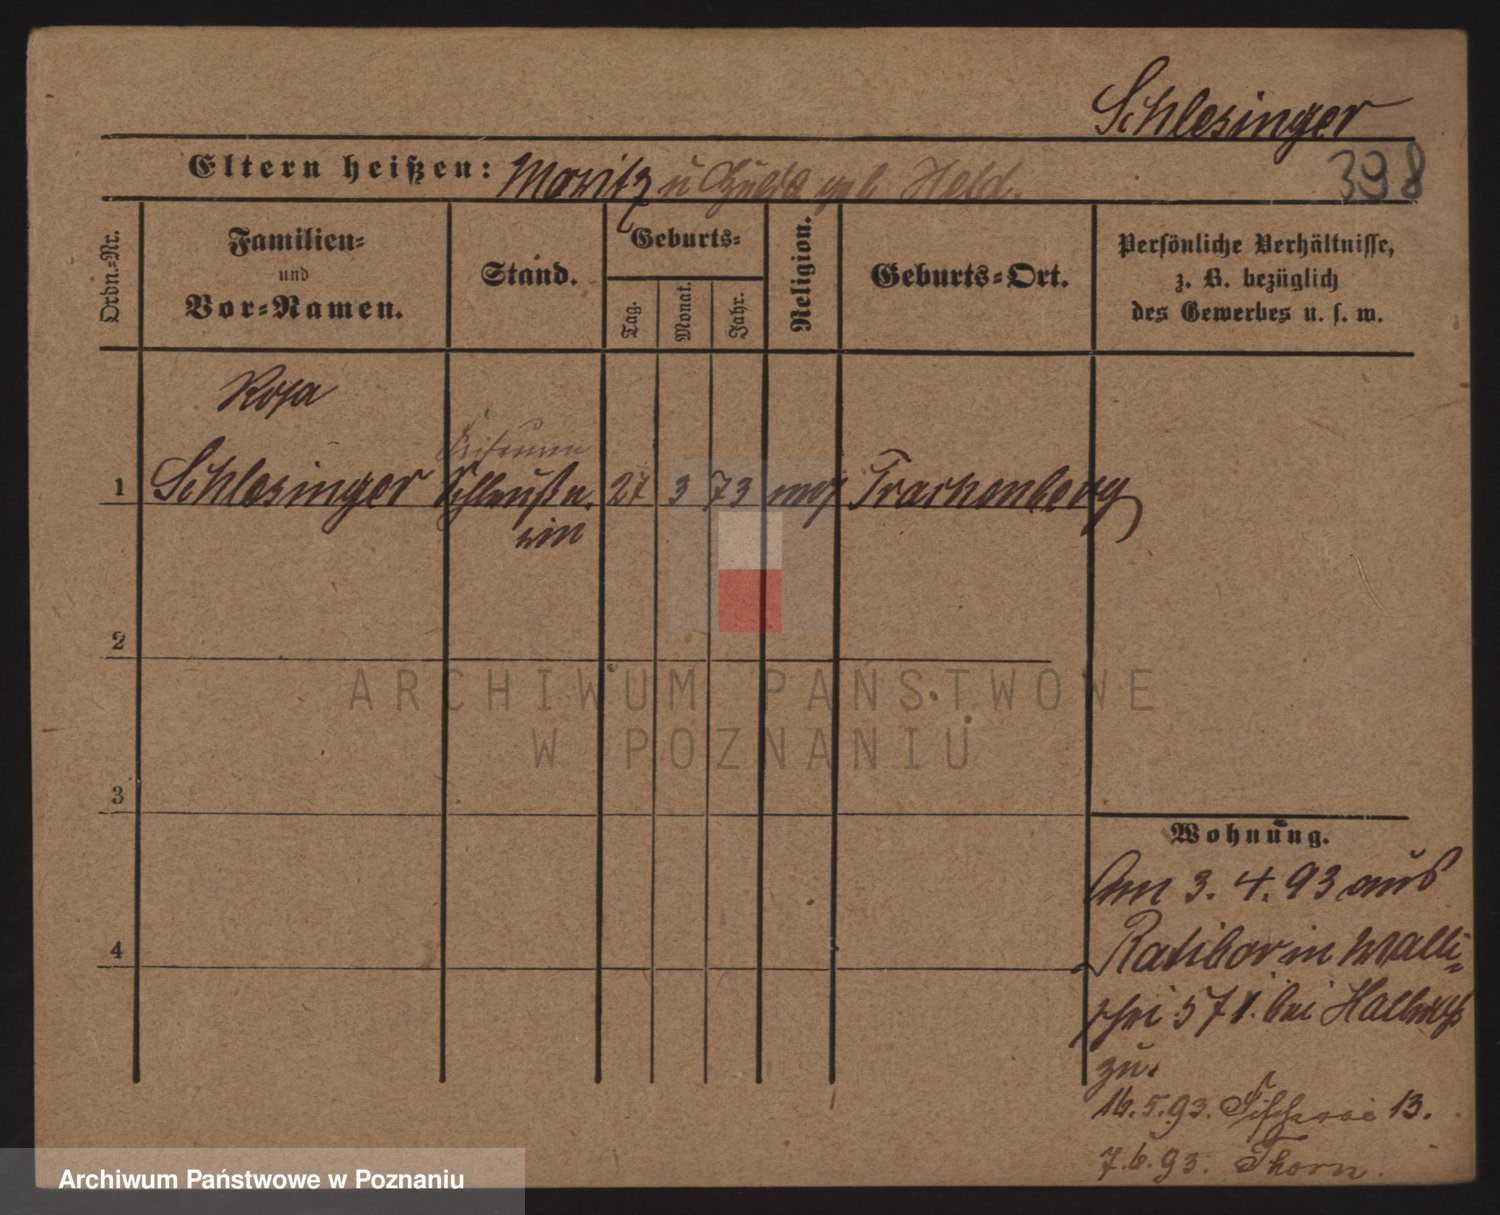 Schlesinger
Eltern heißen: Moritz u geb Held.
398
Ordn.-Nr.
Familien-
und
Vor-Namen.
Stand.
Geburts-
Tag.
Monat.
Jahr.
Religion.
Geburts-Ort.
Persönliche Verhältnisse,
z. B. bezüglich
des Gewerbes u. s. w.
Rosa
1 Schlesinger 27 3 73 mos Trachenberg
2
3
4
ARCHIWUM PAŃSTWOWE
W POZNANIU
Wohnung.
Am 3. 4. 93 aus
Ratibor in Walli-
schei 57 I. bei
zu.
16. 5. 93. Fischerei 13.
7. 6. 93. Thorn.
Archiwum Państwowe w Poznaniu